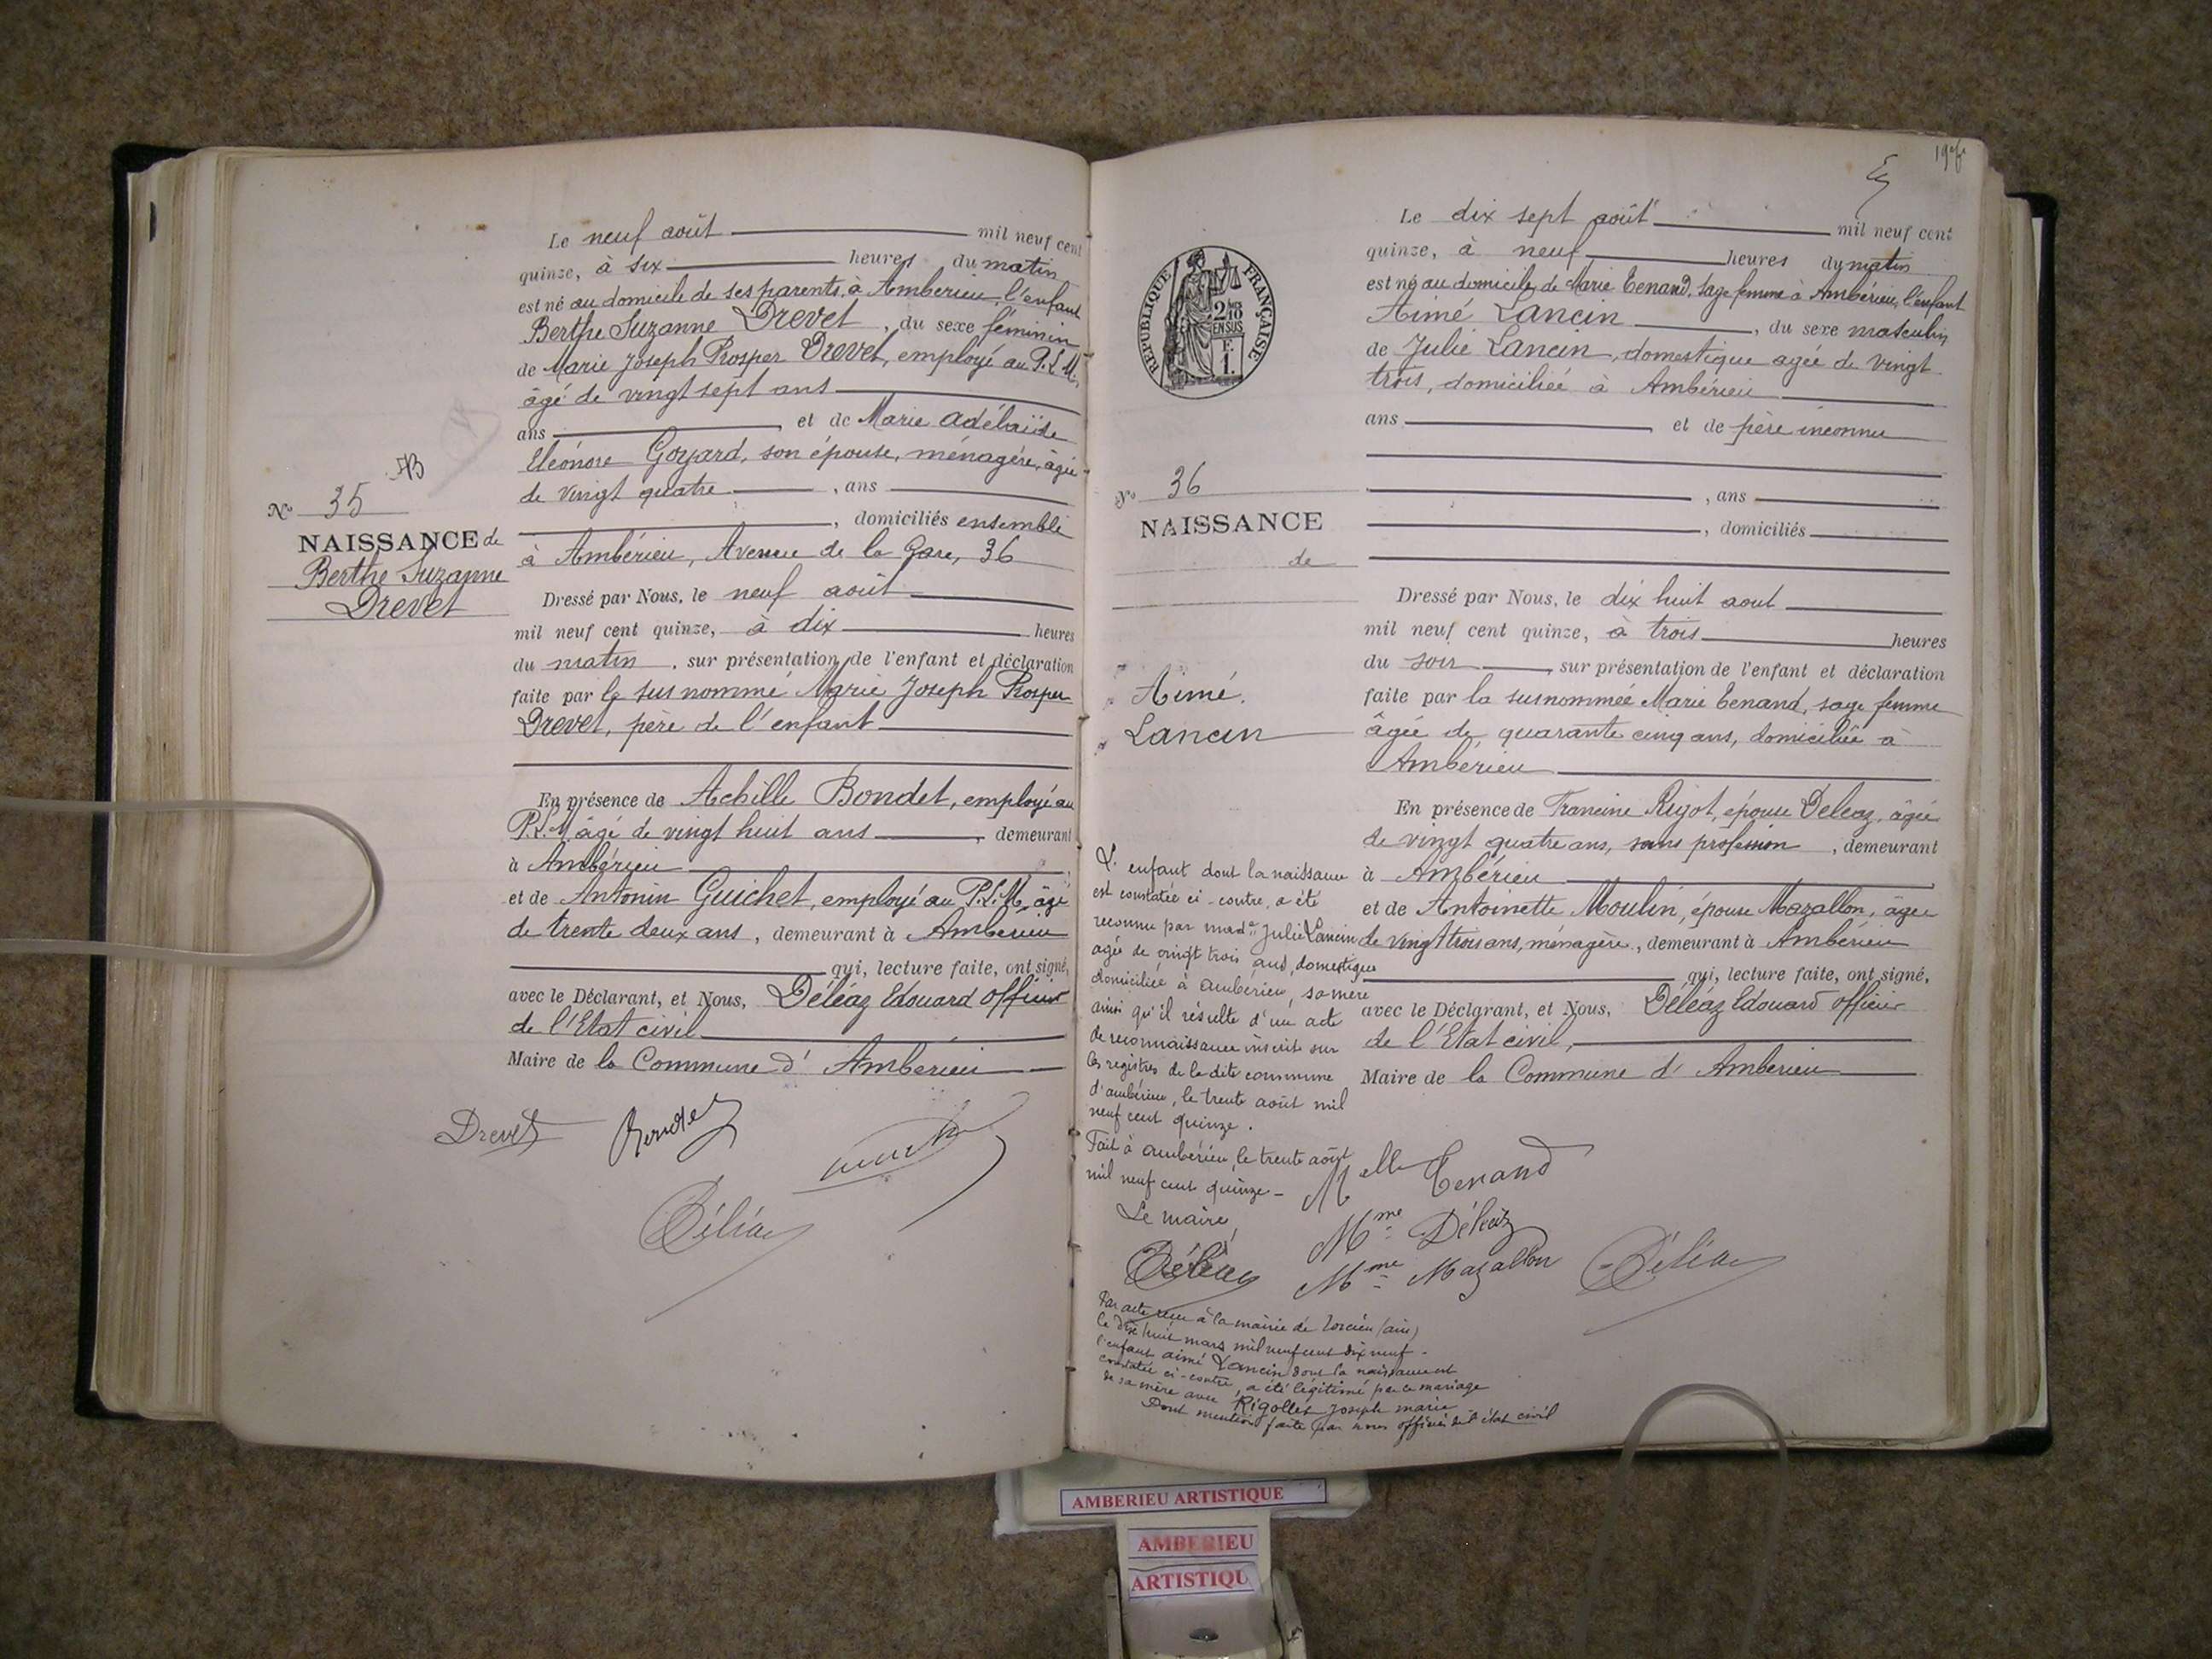 AB
N° 35
NAISSANCE de
Berthe Suzanne
Drevet
Le neuf août mil neuf cent
quinze, à six heures du matin
est né au domicile de ses parents, à Amberieu, l'enfant
Berthe Suzanne Drevet, du sexe féminin
de Marie Joseph Prosper Drevet, employé au P.L.M,
âgé de vingt sept ans
ans et de Marie Adélaïde
Eléonore Goyard, son épouse, ménagère, âgée
de vingt quatre, ans
, domiciliés ensemble
à Ambérieu, Avenue de la Gare, 36
Dressé par Nous, le neuf août
mil neuf cent quinze, à dix heures
du matin, sur présentation de l'enfant et déclaration
faite par le susnommé Marie Joseph Prosper
Drevet, père de l'enfant
En présence de Achille Bondet, employé au
P.L.M âgé de vingt huit ans, demeurant
à Ambérieu
et de Antonin Guichet, employé au P.L.M, âgé
de trente deux ans, demeurant à Amberieu
qui, lecture faite, ont signé,
avec le Déclarant, et Nous, Déléaz Edouard officier
de l'Etat civil
Maire de la Commune d'Amberieu
Drevet
Déléaz
RÉPUBLIQUE FRANÇAISE
2/10 EN SUS
F.
1.
N° 36
NAISSANCE
de
Aimé.
Lancin
Le dix sept août mil neuf cent
quinze, à neuf heures du matin
est né au domicile de Marie Tenand, sage femme à Ambérieu, l'enfant
Aimé Lancin, du sexe masculin
de Julie Lancin, domestique agée de vingt
trois, domiciliée à Ambérieu
ans et de père inconnu
, ans
, domiciliés
Dressé par Nous, le dix huit aout
mil neuf cent quinze, à trois heures
du soir, sur présentation de l'enfant et déclaration
faite par la susnommée Marie Tenand, sage femme
âgée de quarante cinq ans, domiciliée à
Ambérieu
En présence de Francine Rigot, épouse Deleaz, âgée
de vingt quatre ans, sans profession, demeurant
à Ambérieu
et de Antoinette Moulin, épouse Mazallon, âgée
de vingt trois ans, ménagère, demeurant à Ambérieu
qui, lecture faite, ont signé,
avec le Déclarant, et Nous, Déléaz Edouard officier
de l'Etat civil,
Maire de la Commune d'Amberieu
L'enfant dont la naissance
est constatée ci-contre, a été
reconnu par mad.lle Julie Lancin
agée de vingt trois ans, domestique
domiciliée à Ambérieu, sa mère
ainsi qu'il résulte d'un acte
de reconnaissance inscrit sur
les registres de la dite commune
d'ambérieu, le trente août mil
neuf cent quinze.
Fait à ambérieu, le trente août
mil neuf cent quinze -
Le maire,
Déléaz
Melle Tenand
Mme Déléaz
Mme Mazallon
Déléaz
Par acte reçu à la mairie de Torcieu (ain)
le dix huit mars mil neuf cent dix neuf -
l'enfant aimé Lancin dont la naissance est
constatée ci-contre, a été légitimé par le mariage
de sa mère avec Rigollet Joseph marie
Dont mention faite par nous officier de l'état civil
AMBERIEU ARTISTIQUE
AMBERIEU
ARTISTIQU